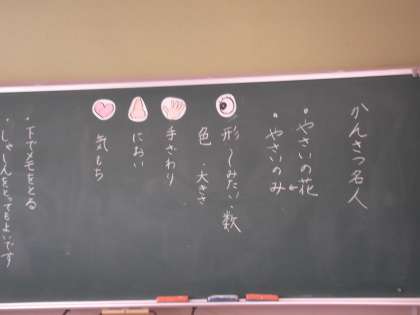 かんさつ名人
・やさいの花
・やさいのみ
形 〜みたい・数
色 ・大きさ
手ざわり
におい
気もち
・下でメモをとる
・しゃしんをとってもよいです